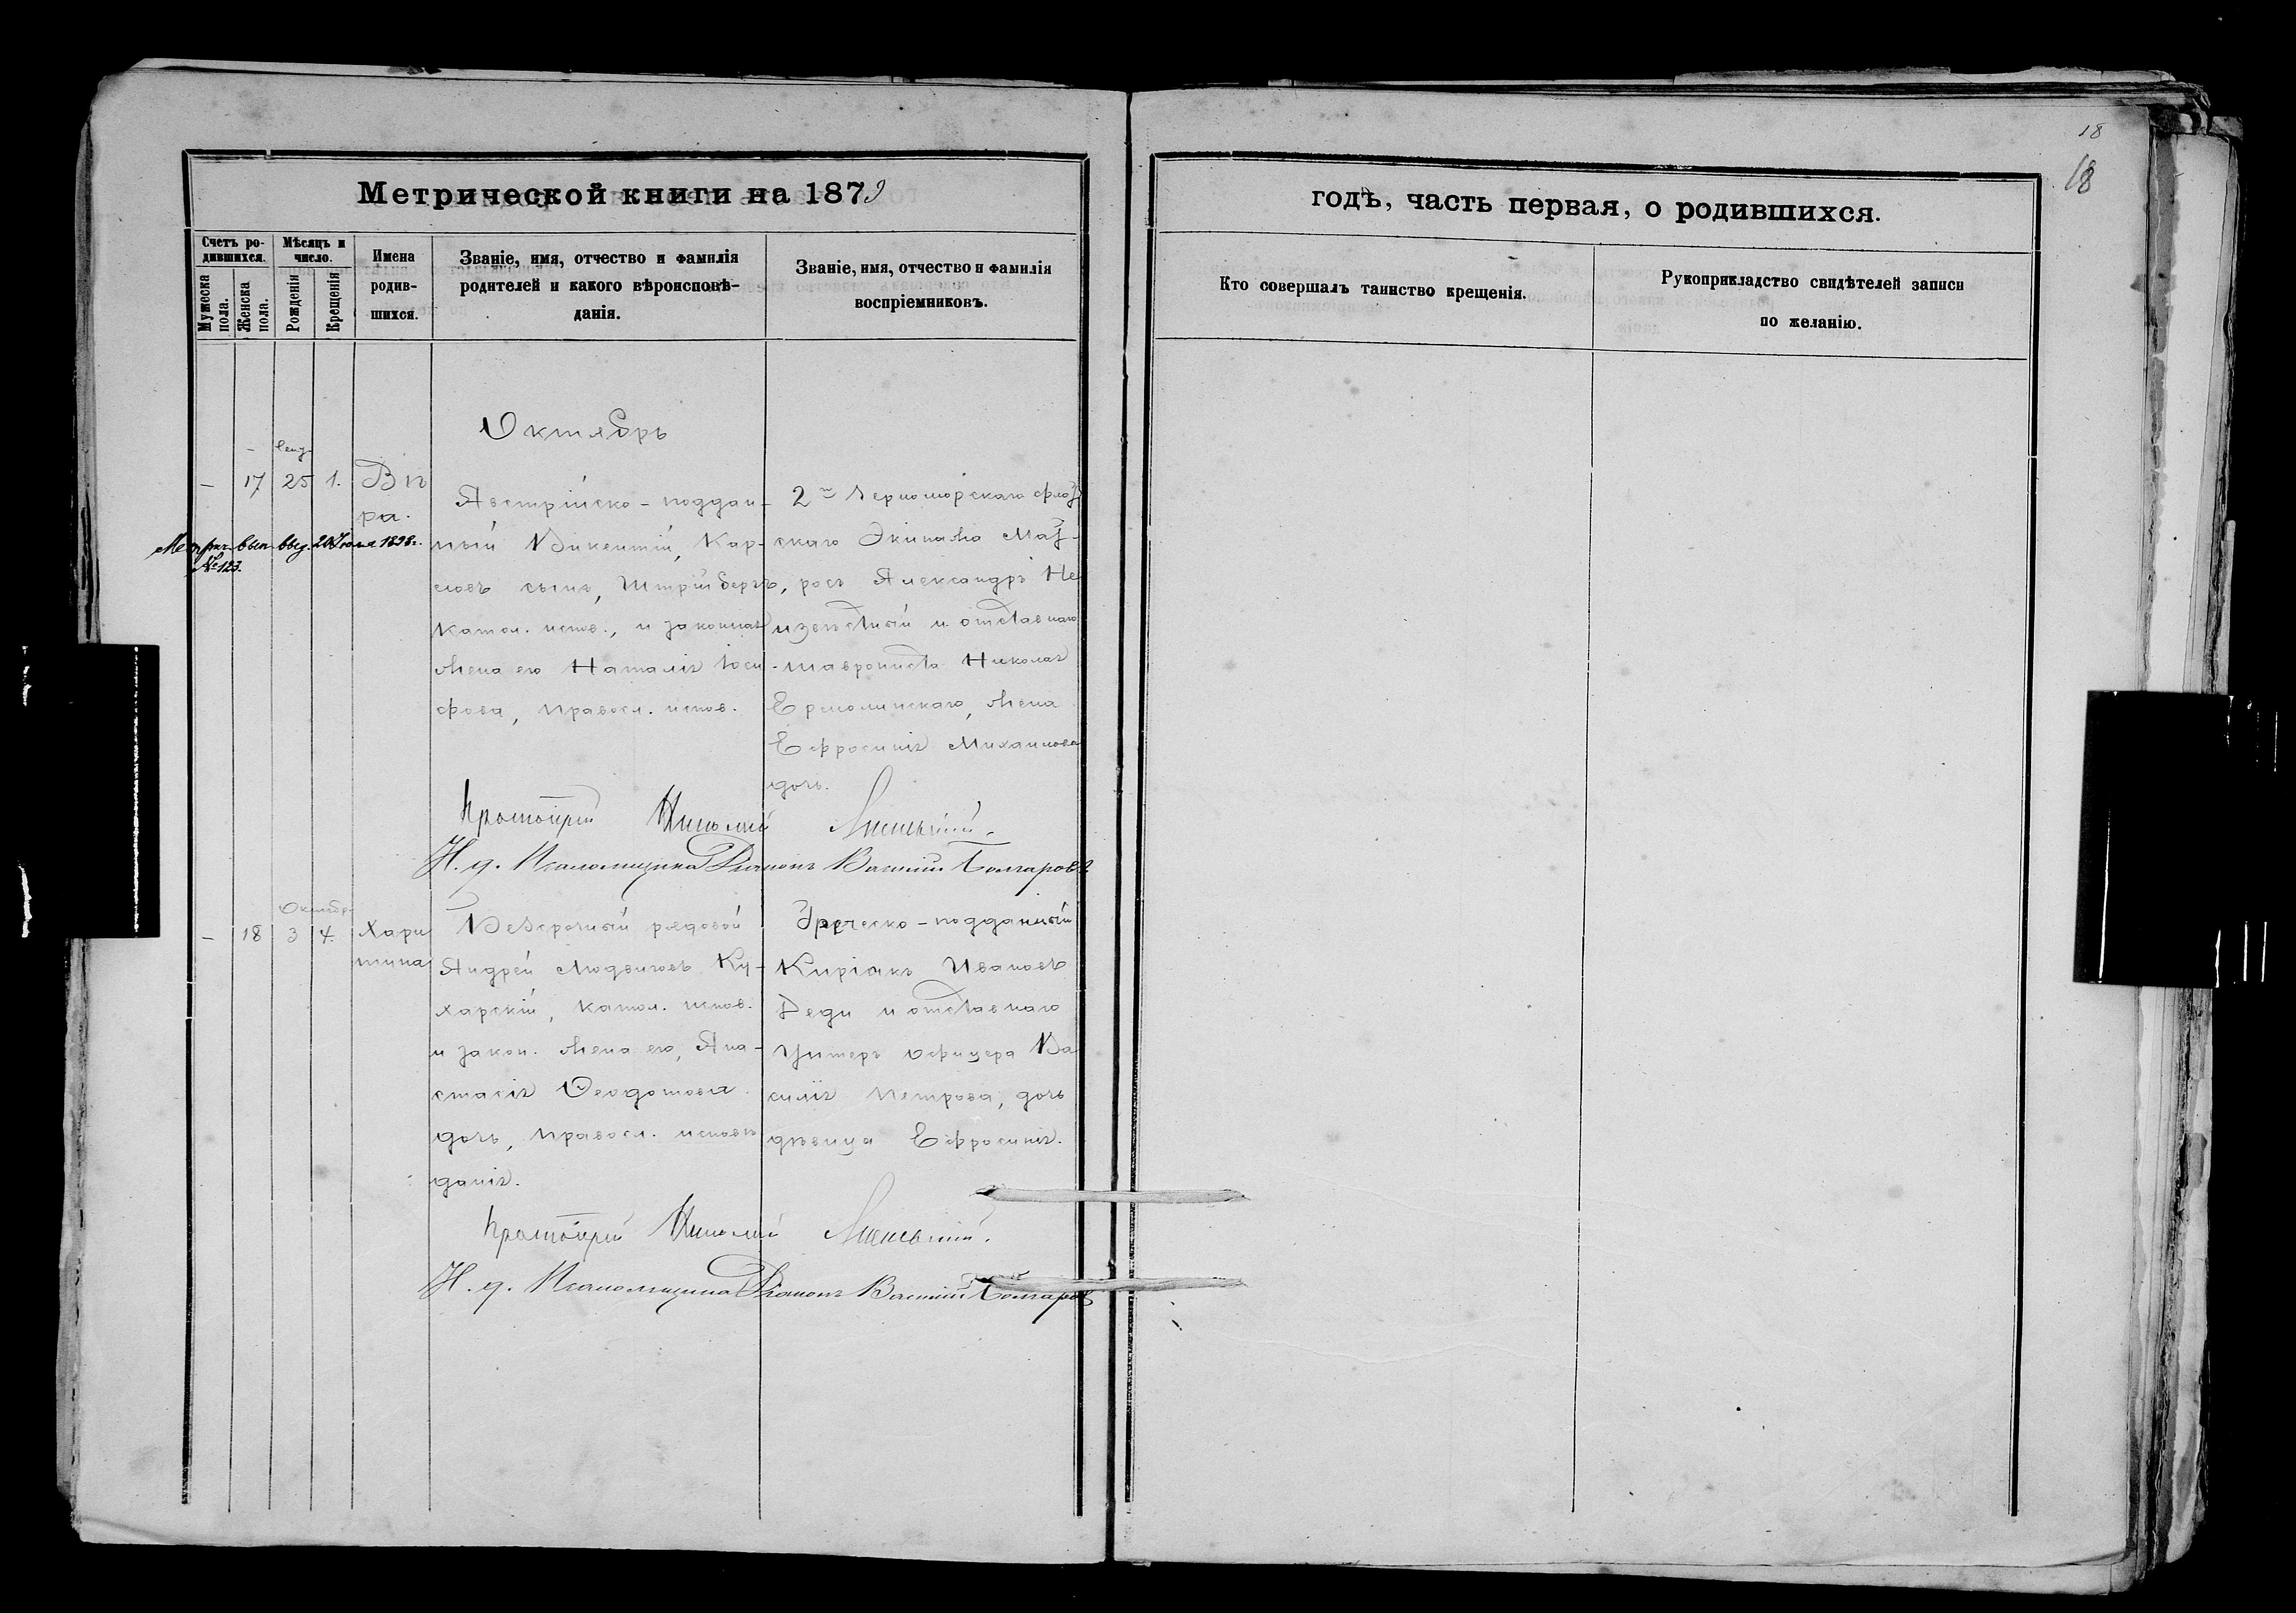 18
18
Метрической книги на 1879
годѣ, часть первая, о родившихся.
Счетъ ро-
дившихся.
Мужеска
пола.
Женска
пола.
Мѣсяцъ и
число.
Рожденія
Крещенія
Имена
родив-
шихся.
Званіе, имя, отчество и фамилія
родителей и какого вѣроисповѣ-
данія.
Званіе, имя, отчество и фамилія
воспріемниковъ.
Кто совершалъ таинство крещенія.
Рукоприкладство свидѣтелей записи
по желанію.
Октябрь
– 17 25 1. Вѣ
ра.
Метрич. вып. выд. 20 1898 г.
№ 123.
Австрійско-поддан-
ный Викентій, Кар-
ловъ сынъ, Штрійбергъ,
катол. испов., и законная
жена его Наталія Іоси-
фова, правосл. испов.
2го Черноморскаго флот
скаго Экипажа Мат-
росъ Александръ Не
извѣстный и отставнаго
Николая
Ермолинскаго, жена
Ефросинія Михаилова
дочь.
Протоіерей Николай
И. д. Псаломщика Діаконъ Василій Болгаровъ
Октябр.
– 18 3 4. Хари
тина
Безсрочный рядовой
Андрей Людвиговъ Ку-
харскій, катол. испов.
и закон. жена его, Ана-
стасія Ѳеодотова
дочь, правосл. исповѣ
данія.
Греческо-подданный
Киріакъ Ивановъ
Деди и отставнаго
Унтеръ офицера Ва
силія Петрова, дочь
дѣвица Ефросинія.
Протоіерей Николай
И. д. Псаломщика Діаконъ Василій Болгаровъ